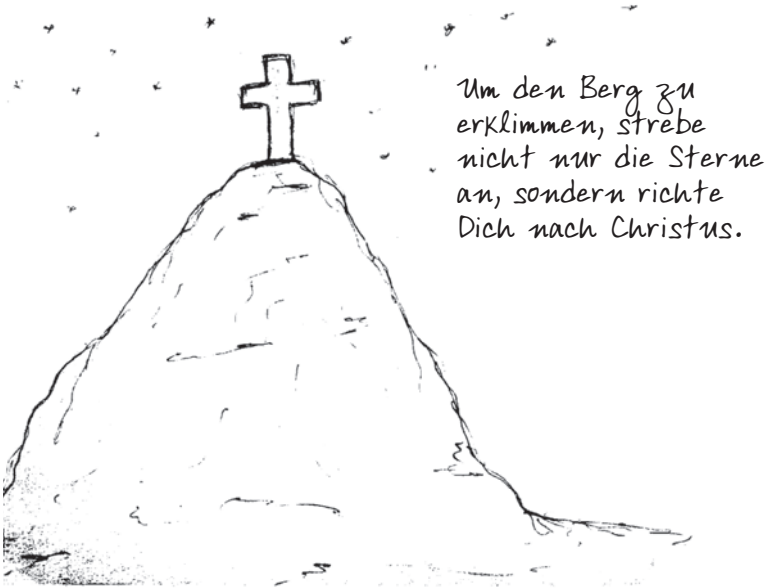 Um den Berg zu
erklimmen, strebe
nicht nur die Sterne
an, sondern richte
Dich nach Christus.